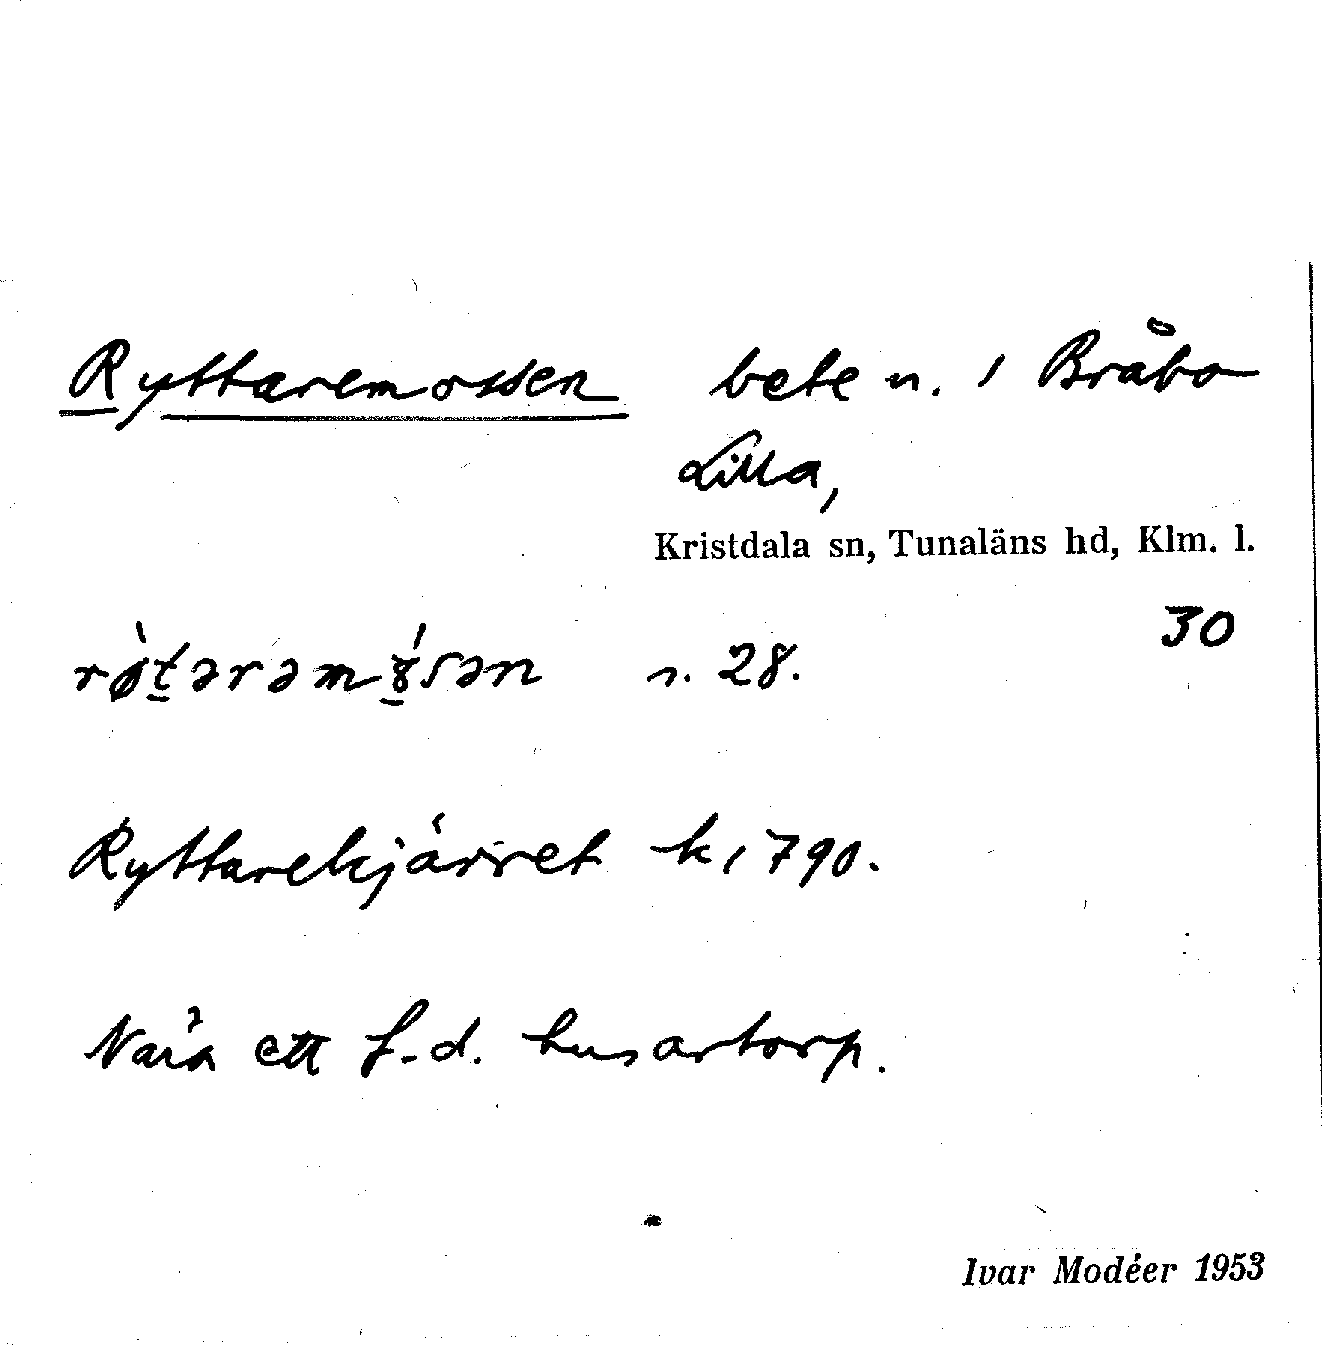 Ryttaremossen bete n. i Bråbo
Lilla,
Kristdala sn, Tunaläns hd, Klm. l.
30
rø̀t̲ərəmɣ̲́sən s. 28.
Ryttarekjärret k 1790.
Nära ett f.d. husartorp.
Ivar Modéer 1953